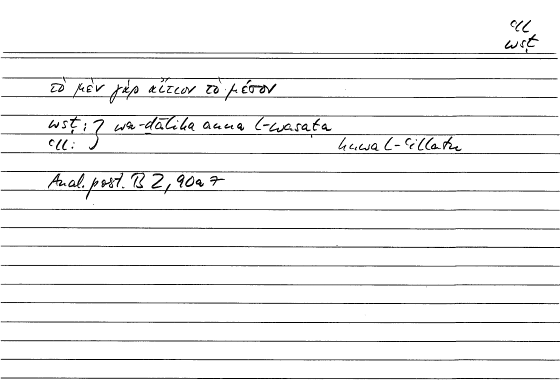 ʿll
wsṭ
τὸ μὲν γὰρ αἴτιον τὸ μέσον
wsṭ: } wa-ḏālika anna l-wasaṭa
ʿll: } huwa l-ʿillatu
Anal. post. B 2, 90a7